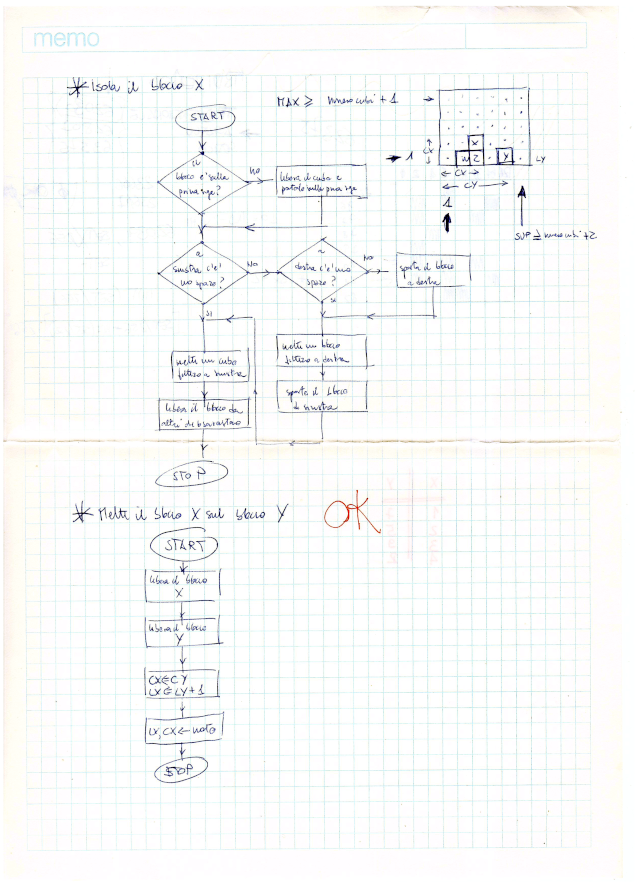 memo
* Isola il blocco X
MAX ≥ numero cubi + 1
START
il
blocco è sulla
prima riga?
NO
libera il cubo e
portalo sulla prima riga
a
sinistra c'è
uno spazio?
NO
a
destra c'è uno
spazio?
NO
sposta il blocco
a destra
SI
SI
metti un cubo
fittizio a sinistra
metti un blocco
fittizio a destra
libera il blocco da
altri
sposta il blocco
di sinistra
STOP
X
W Z
Y
LX
1
LY
← CX →
← CY →
1
SUP ≥ numero cubi + 2
* Metti il blocco X sul blocco Y
OK
START
libera il blocco
X
libera il blocco
Y
CX ← CY
LX ← LY + 1
LX, CX ← vuoto
STOP